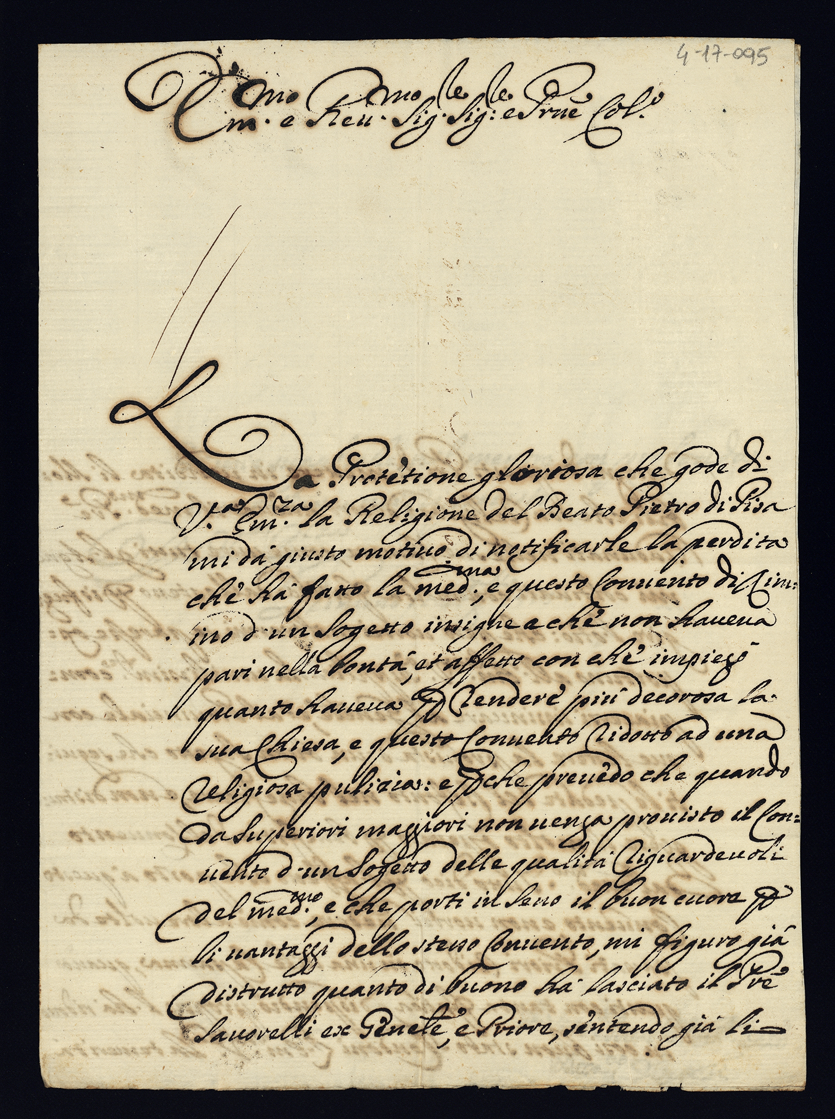 4-17-095
Em.mo e Reu.mo Sig.le Sig.le e Prne Col.o
La Protètione gloriosa che gode di
V.a Em.za la Religione del Beato Pietro di Pisa
mi dà giusto motiuo di notificarle la perdita
chè hà fatto la med.ma, e questo Conuento di Rim:
ino d'un Sogetto insigne e chè non haueua
pari nella bontà, et affetto con chè impiegò
quanto haueua p rendere più decorosa la
sua Chiesa, e questo Conuento ridotto ad una
religiosa pulizia: e pche preuèdo che quando
da Superiori maggiori non uenga prouisto il Con:
uento d'un Sogetto delle qualità riguardeuoli
del med.mo, e che porti in seno il buon cuore p
li uantaggi dello stesso Conuento, mi figuro già
distrutto quanto di buono hà lasciato il Prè
Sauorelli ex Genèle, e Priore, sèntendo già li